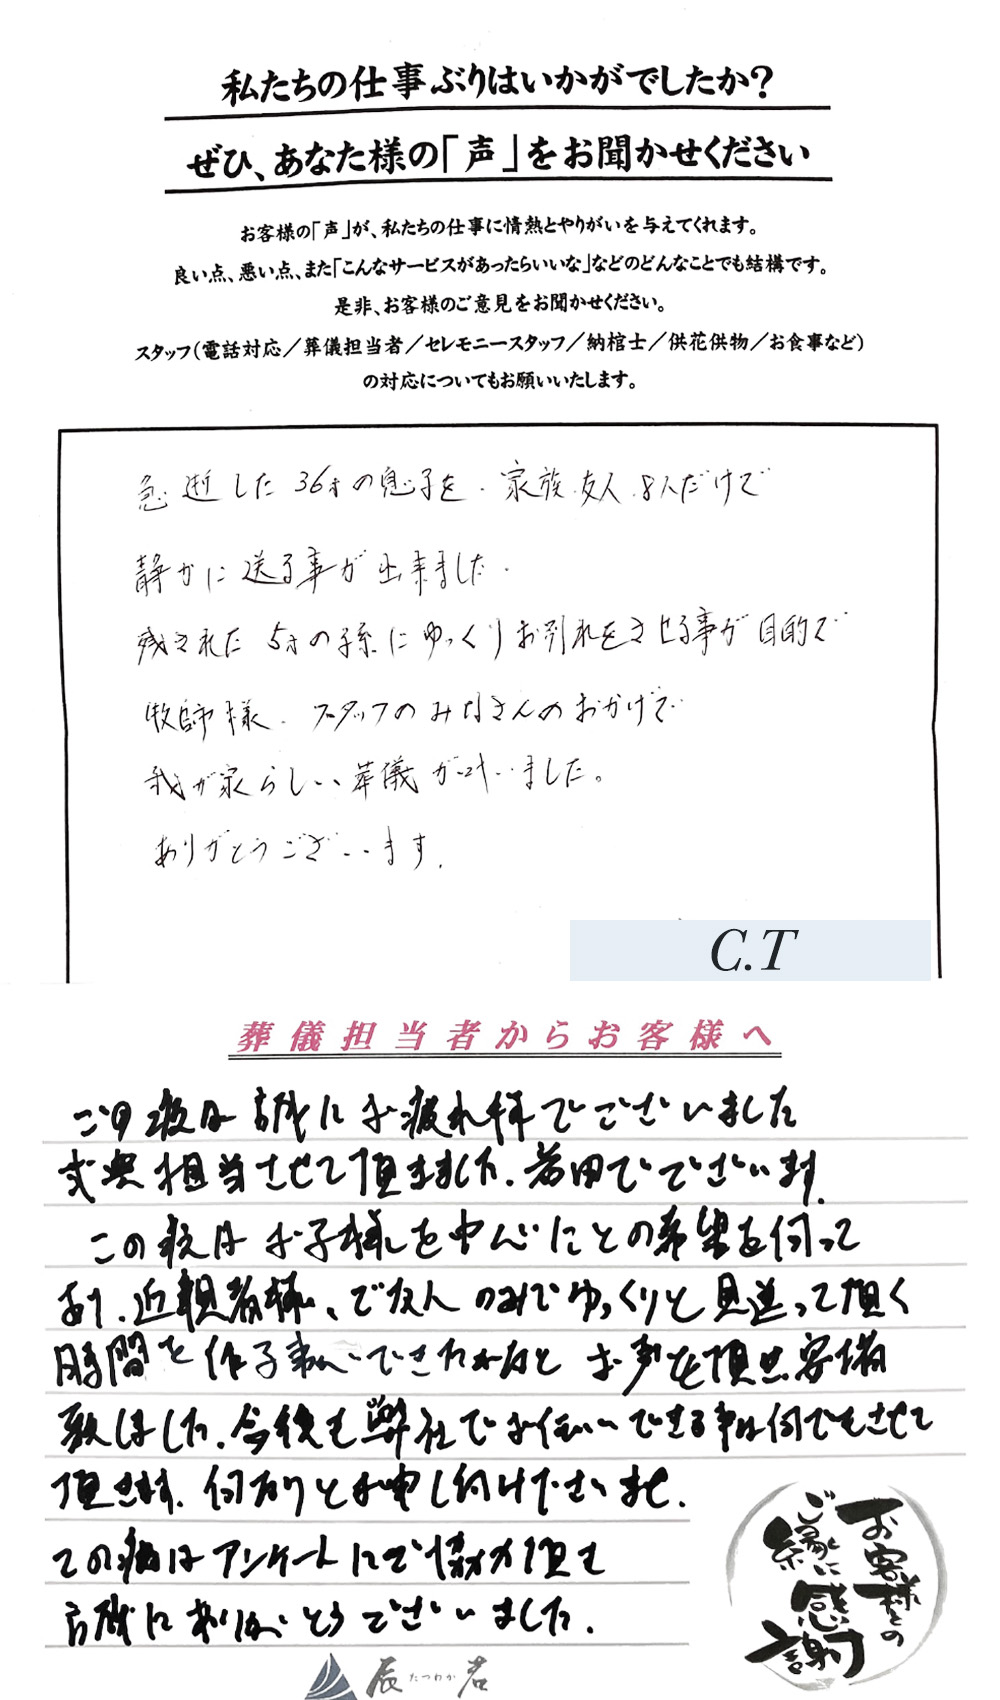 私たちの仕事ぶりはいかがでしたか？
ぜひ、あなた様の「声」をお聞かせください
お客様の「声」が、私たちの仕事に情熱とやりがいを与えてくれます。
良い点、悪い点、また「こんなサービスがあったらいいな」などのどんなことでも結構です。
是非、お客様のご意見をお聞かせください。
スタッフ（電話対応／葬儀担当者／セレモニースタッフ／納棺士／供花供物／お食事など）
の対応についてもお願いいたします。
急逝した36才の息子を、家族、友人、8人だけで
静かに送る事が出来ました。
残された5才の孫にゆっくりお別れをさせる事が目的で
牧師様、スタッフのみなさんのおかげで
我が家らしい、葬儀が叶いました。
ありがとうございます。
C.T
葬儀担当者からお客様へ
この度は誠にお疲れ様でございました
式典担当させて頂きました、若田でございます。
この度はお子様を中心にとの希望を伺って
おり、近親者様、ご友人のみでゆっくりと見送って頂く
時間を作る事ができたかなと お声を頂き安堵
致しました。今後も弊社でお伝いできる事は何でもさせて
頂きます。何なりとお申し付け下さいませ。
この度はアンケートにご協力頂き
誠にありがとうございました。
お客様との
ご縁に
感謝
辰たつわか若